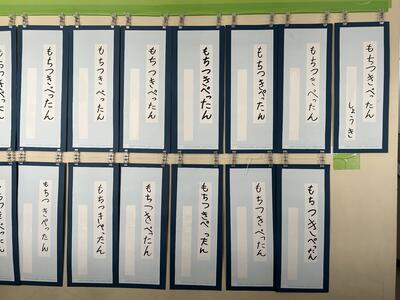 もちつきぺったん
しょうき
もちつきぺったん
もちつきぺったん
もちつきぺったん
もちつきぺったん
もちつきぺったん
もちつきぺったん
もちつきぺったん
もちつきぺったん
もちつきぺったん
もちつきぺったん
もちつきぺったん